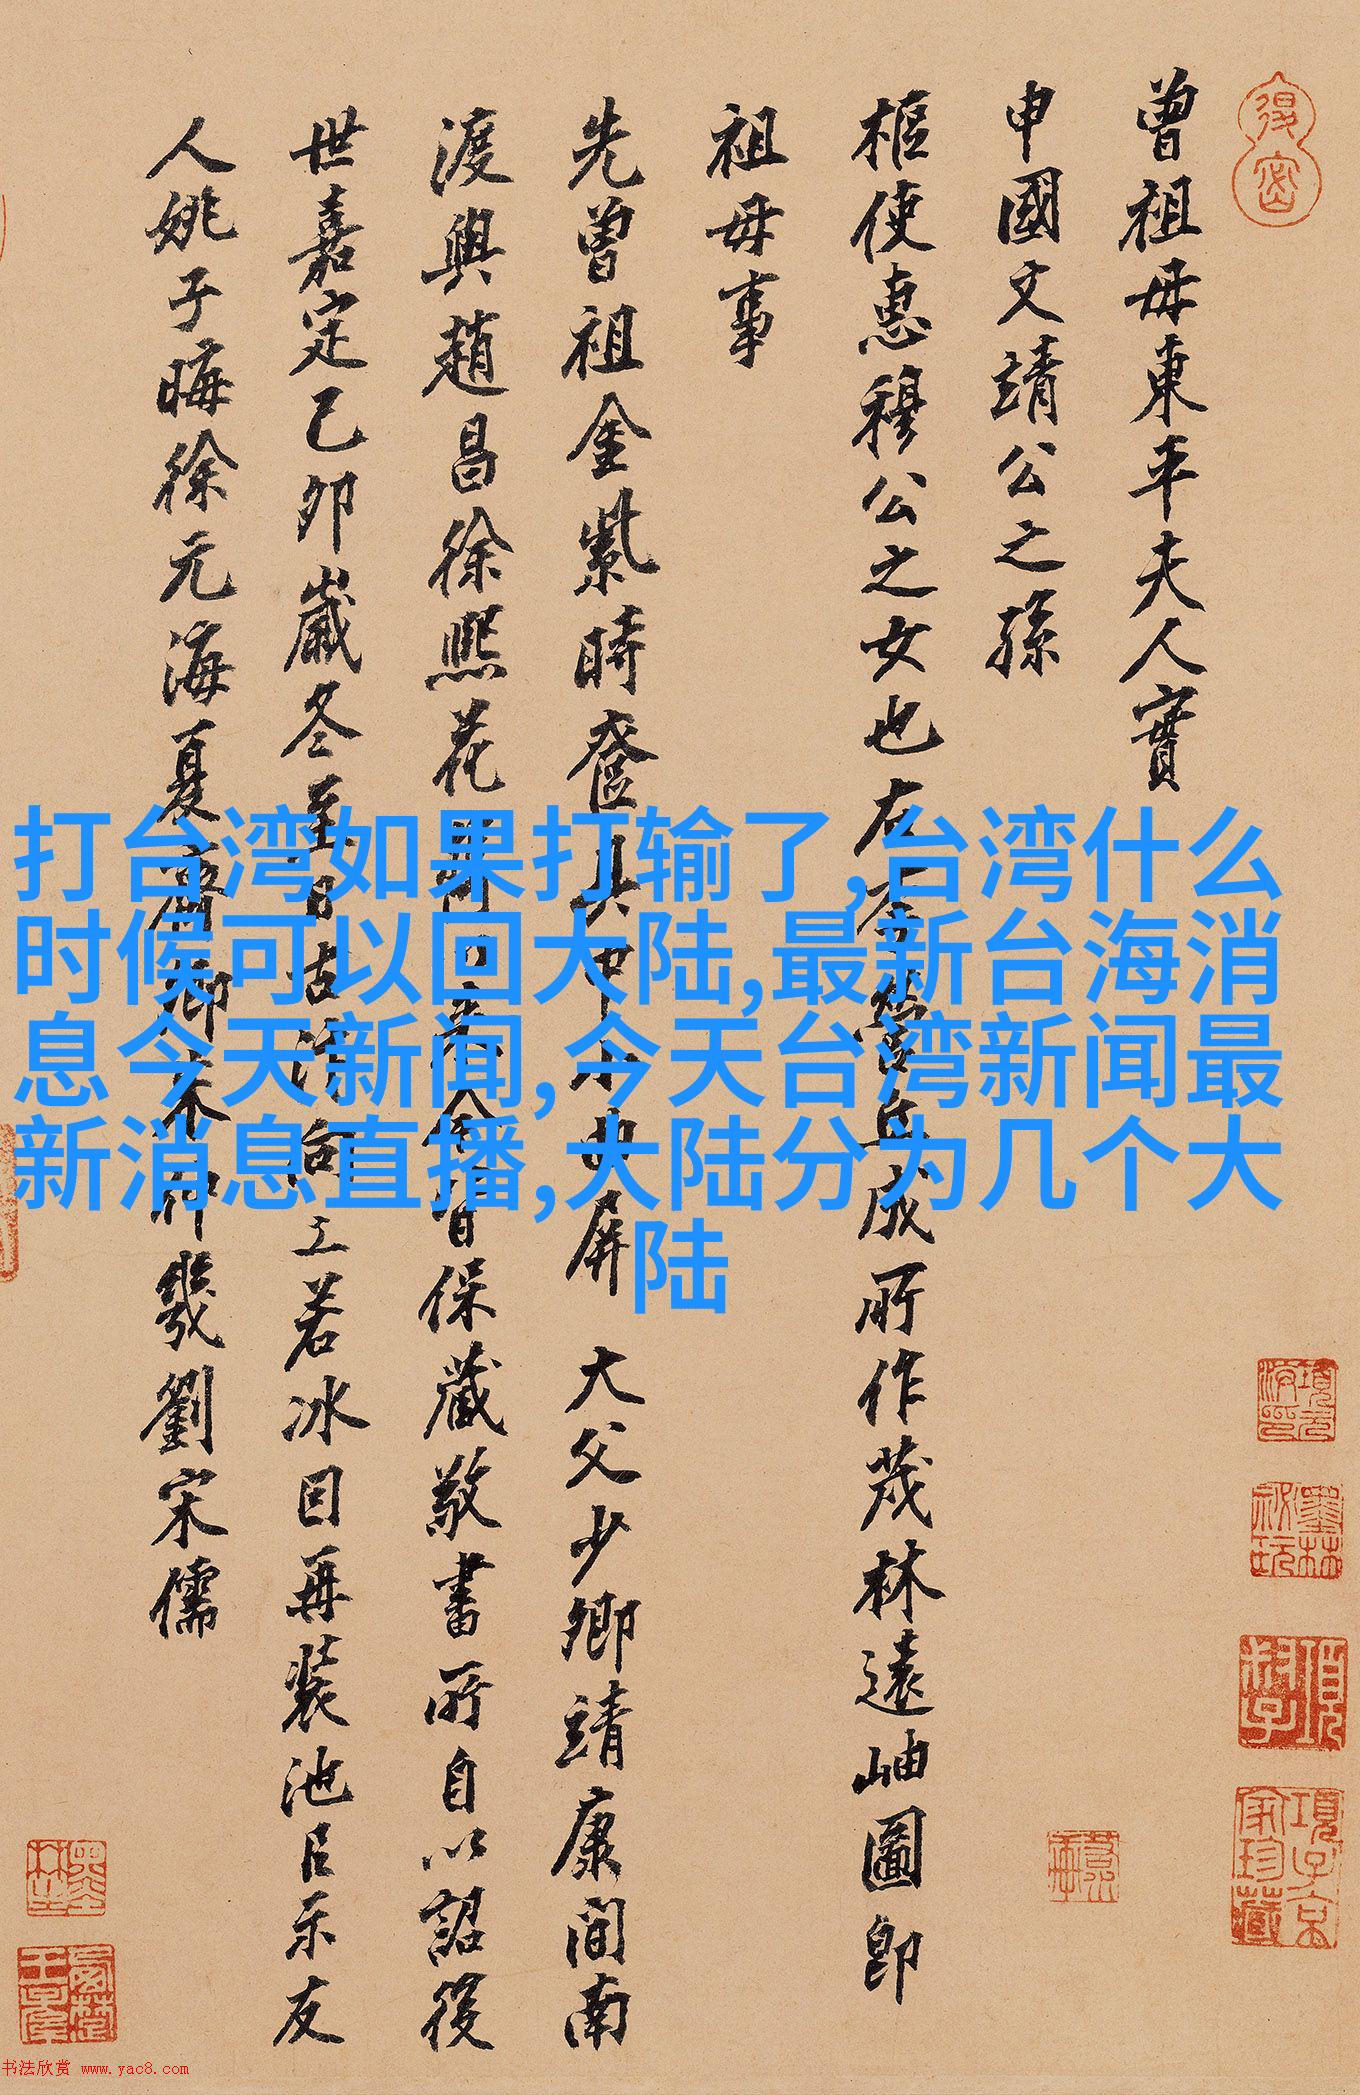 曾祖母東平夫人實
申國文靖公之孫
樞使惠穆公之女也右李營丘咸所作茂林遠岫圖卽
祖母事
先曾祖金紫時奩具中小曲屏 大父少卿靖康間南
渡與趙昌徐熙花
保藏敬書所自以詔後
世嘉定己卯歲冬至日古汴向
工若冰因再裝池呂示友
人姚子晦徐元海夏
卿
幾劉宋儒
打台湾如果打输了,台湾什么
时候可以回大陆,最新台海消
息今天新闻,今天台湾新闻最
新消息直播,大陆分为几个大
陆
书法欣赏 www.yac8.com